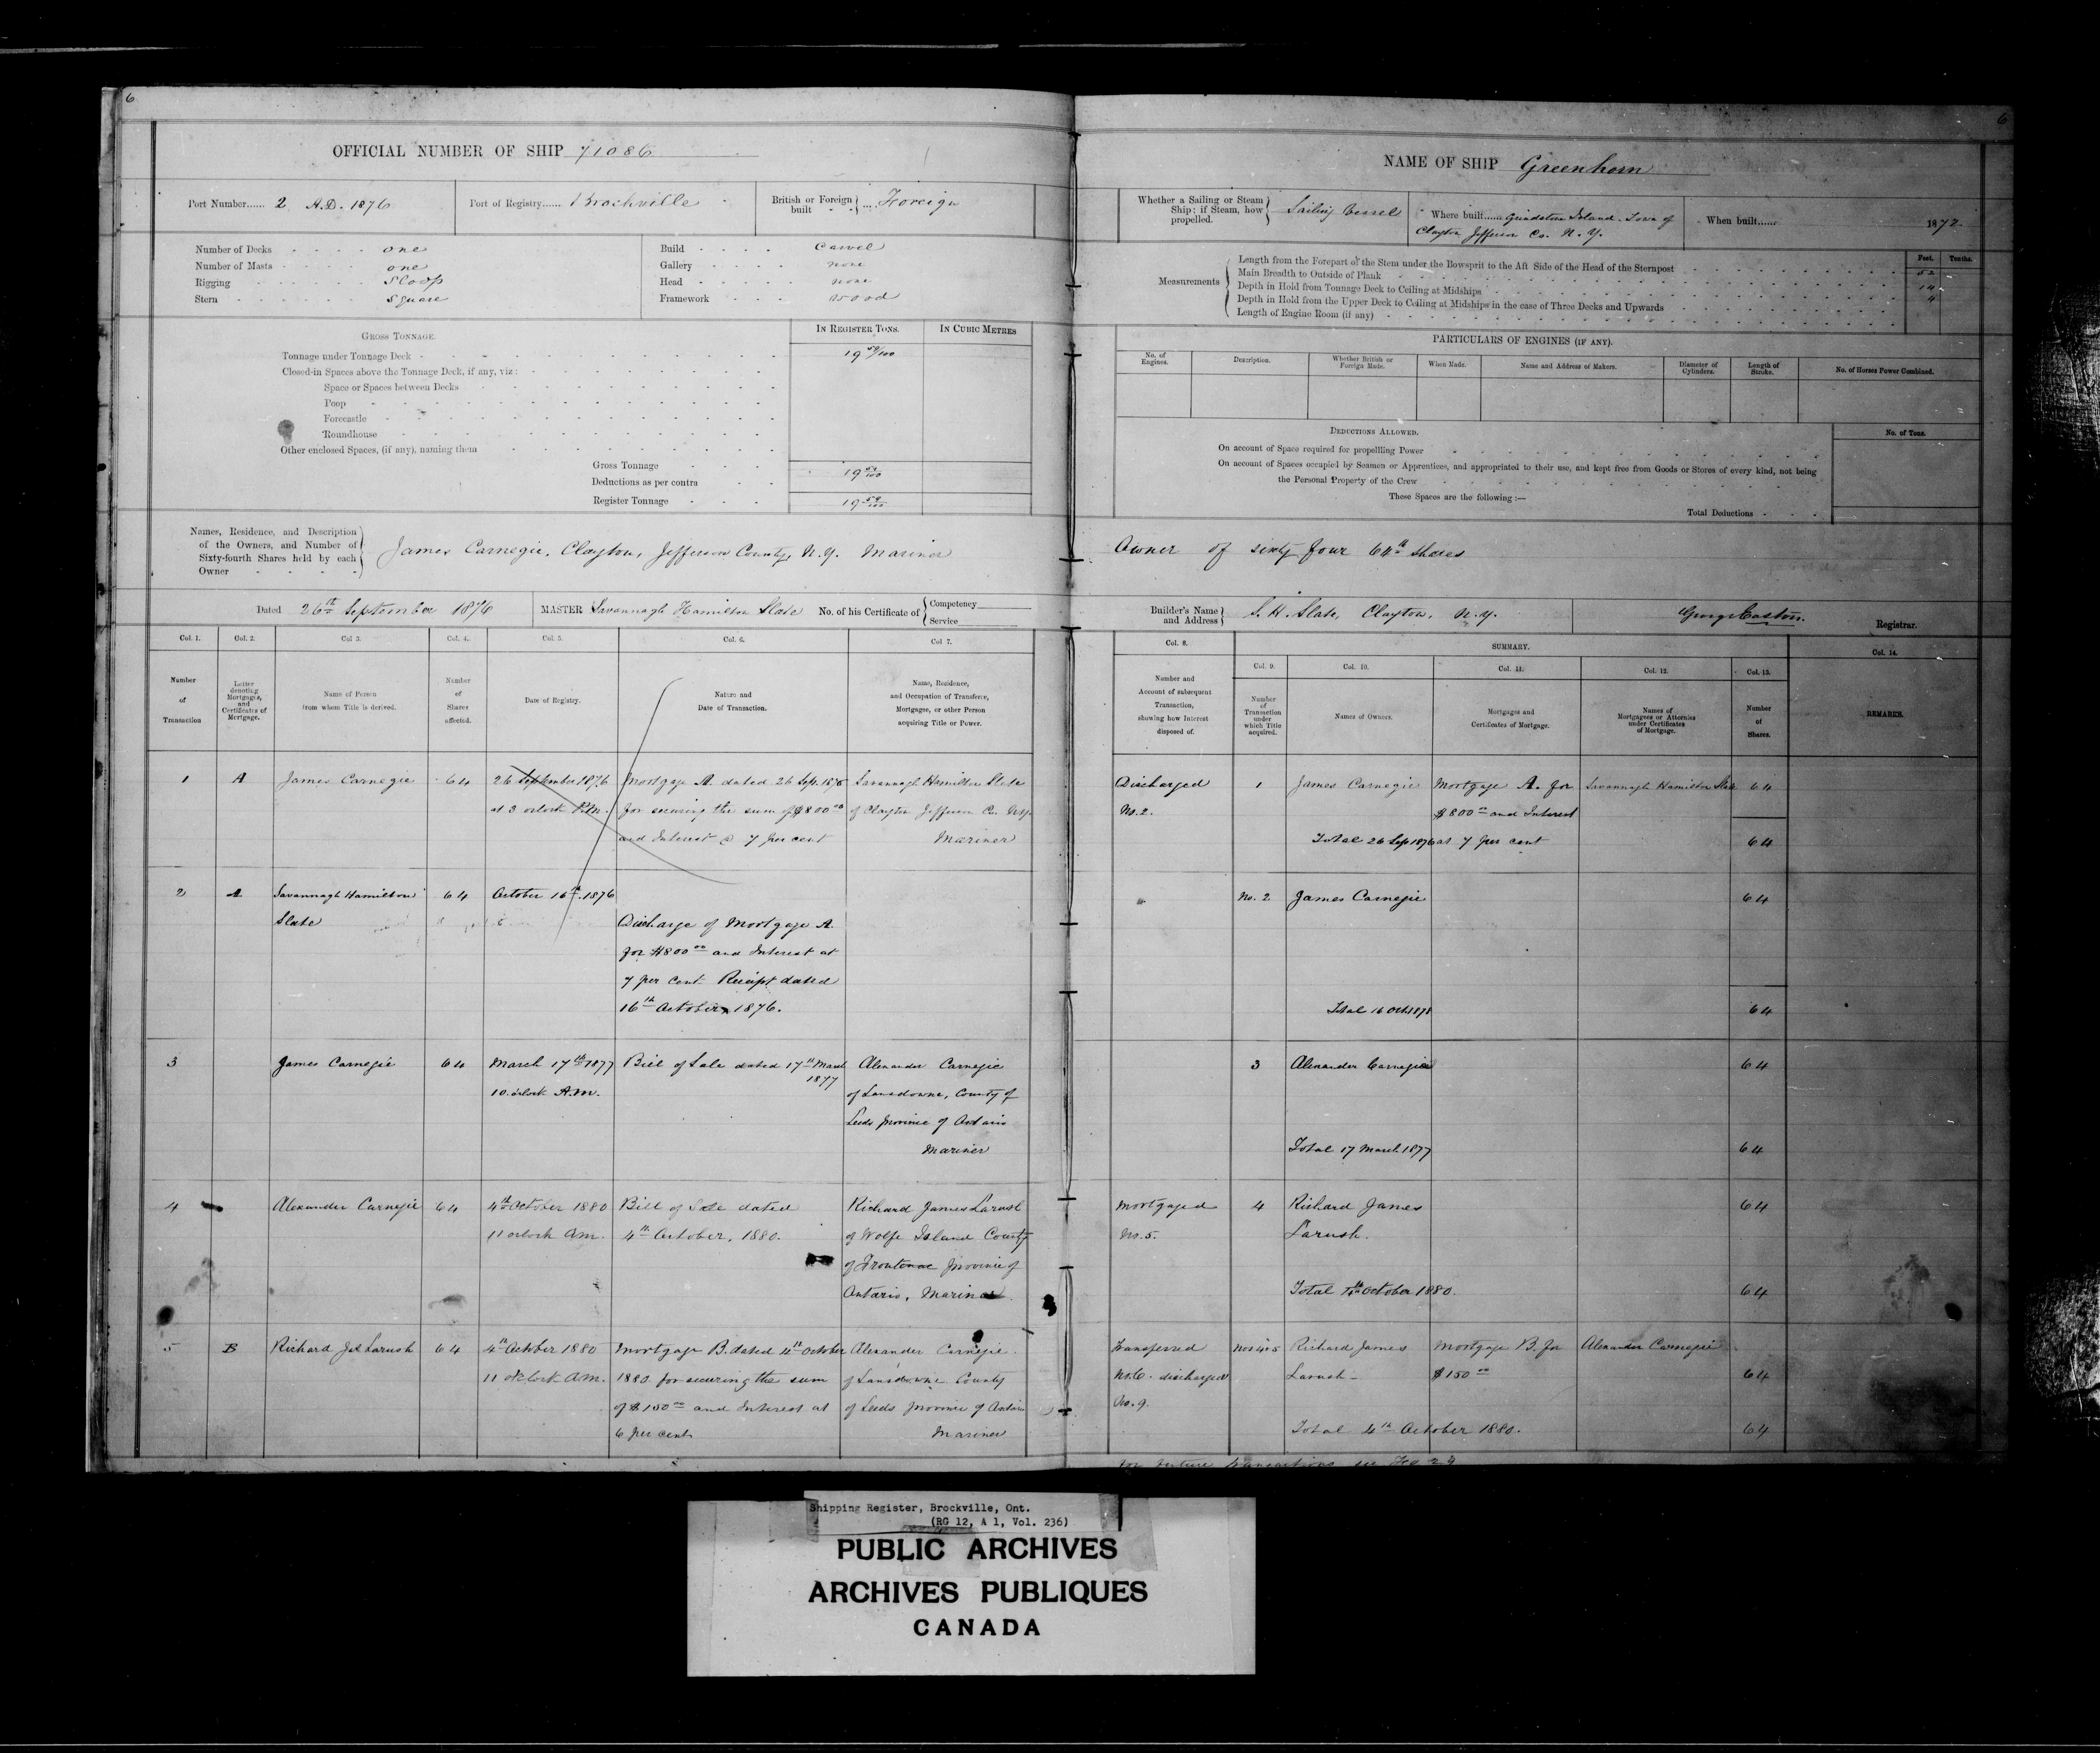 6
OFFICIAL NUMBER OF SHIP 71086
Port Number...... 2 A.D. 1876
Port of Registry...... Brockville
British or Foreign built } ... Foreign
Number of Decks - - - - one
Number of Masts - - - - one
Rigging - - - - Sloop
Stern - - - - Square
Build - - - - Carvel
Gallery - - - - none
Head - - - - none
Framework - - - - wood
GROSS TONNAGE.
IN REGISTER TONS.
IN CUBIC METRES
Tonnage under Tonnage Deck - 19 59/100
Closed-in Spaces above the Tonnage Deck, if any, viz:
Space or Spaces between Decks
Poop
Forecastle
Roundhouse
Other enclosed Spaces, (if any), naming them
Gross Tonnage 19 59/100
Deductions as per contra
Register Tonnage 19 59/100
Names, Residence, and Description
of the Owners, and Number of
Sixty-fourth Shares held by each
Owner
James Carnegie, Clayton, Jefferson County, N.Y. Mariner
Dated 26th September 1876
MASTER Savannagh Hamilton Slate No. of his Certificate of { Competency
Service
Col. 1.
Col. 2.
Col 3.
Col. 4.
Col. 5.
Col. 6.
Col 7.
Number
of
Transaction
Letter
denoting
Mortgages,
and
Certificates of
Mortgage.
Name of Person
from whom Title is derived.
Number
of
Shares
affected.
Date of Registry.
Nature and
Date of Transaction.
Name, Residence,
and Occupation of Transferee,
Mortgagee, or other Person
acquiring Title or Power.
1 A James Carnegie 64
26 September 1876
at 3 oclock P.M.
Mortgage A. dated 26 Sep. 1876
for securing the sum of $800 00
and Interest @ 7 per cent
Savannagh Hamilton Slate
of Clayton Jefferson Co. N.Y.
Mariner
2 A Savannagh Hamilton
Slate
64
October 16th. 1876
Discharge of Mortgage A.
for $800 00 and Interest at
7 per cent Receipt dated
16th October 1876.
3 James Carnegie 64
March 17th 1877
10 oclock A.M.
Bill of Sale dated 17th March
1877
Alexander Carnegie
of Lansdowne, County of
Leeds Province of Ontario
Mariner
4 Alexander Carnegie 64
4th October 1880
11 oclock a.m.
Bill of Sale dated
4th October, 1880.
Richard James Larush
of Wolfe Island County
of Frontenac Province of
Ontario, Mariner.
5 B Richard Jas Larush 64
4th October 1880
11 oclock a.m.
Mortgage B. dated 4th October
1880 for securing the sum
of $150 00 and Interest at
6 per cent
Alexander Carnegie
of Lansdowne County
of Leeds Province of Ontario
Mariner
6
NAME OF SHIP Greenhorn
Whether a Sailing or Steam
Ship; if Steam, how
propelled.
Sailing Vessel
Where built...... Grindstone Island. Town of
Clayton Jefferson Co. N.Y.
When built...... 1872.
Measurements
Feet.
Tenths.
Length from the Forepart of the Stem under the Bowsprit to the Aft Side of the Head of the Sternpost 52
Main Breadth to Outside of Plank 14
Depth in Hold from Tonnage Deck to Ceiling at Midships 4
Depth in Hold from the Upper Deck to Ceiling at Midships in the case of Three Decks and Upwards
Length of Engine Room (if any)
PARTICULARS OF ENGINES (IF ANY).
No. of
Engines.
Description.
Whether British or
Foreign Made.
When Made.
Name and Address of Makers.
Diameter of
Cylinders.
Length of
Stroke.
No. of Horses Power Combined.
DEDUCTIONS ALLOWED.
No. of Tons.
On account of Space required for propellling Power
On account of Spaces occupied by Seamen or Apprentices, and appropriated to their use, and kept free from Goods or Stores of every kind, not being
the Personal Property of the Crew
These Spaces are the following :—
Total Deductions
Owner of sixty four 64th Shares
Builder's Name
and Address
S. H. Slate, Clayton, N.Y.
George Easton.
Registrar.
Col. 8.
SUMMARY.
Col. 9.
Col. 10.
Col. 11.
Col. 12.
Col. 13.
Col. 14.
Number and
Account of subsequent
Transaction,
showing how Interest
disposed of.
Number
of
Transaction
under
which Title
acquired.
Names of Owners.
Mortgages and
Certificates of Mortgage.
Names of
Mortgagees or Attornies
under Certificates
of Mortgage.
Number
of
Shares.
REMARKS.
Discharged
No. 2.
1 James Carnegie
Mortgage A. for
$800 00 and Interest
at 7 per cent
Savannagh Hamilton Slate
64
Total 26 Sep 1876
64
No. 2 James Carnegie 64
Total 16 Oct 1876
64
3 Alexander Carnegie 64
Total 17 March 1877 64
Mortgaged
No. 5.
4 Richard James
Larush.
64
Total 4th October 1880. 64
Transferred
No. 6. discharged
No. 9.
Nos 4 & 5 Richard James
Larush
Mortgage B. for
$150 00
Alexander Carnegie
64
Total 4th October 1880. 64
For future transactions see Fo 24
Shipping Register, Brockville, Ont.
(RG 12, A 1, Vol. 236)
PUBLIC ARCHIVES
ARCHIVES PUBLIQUES
CANADA